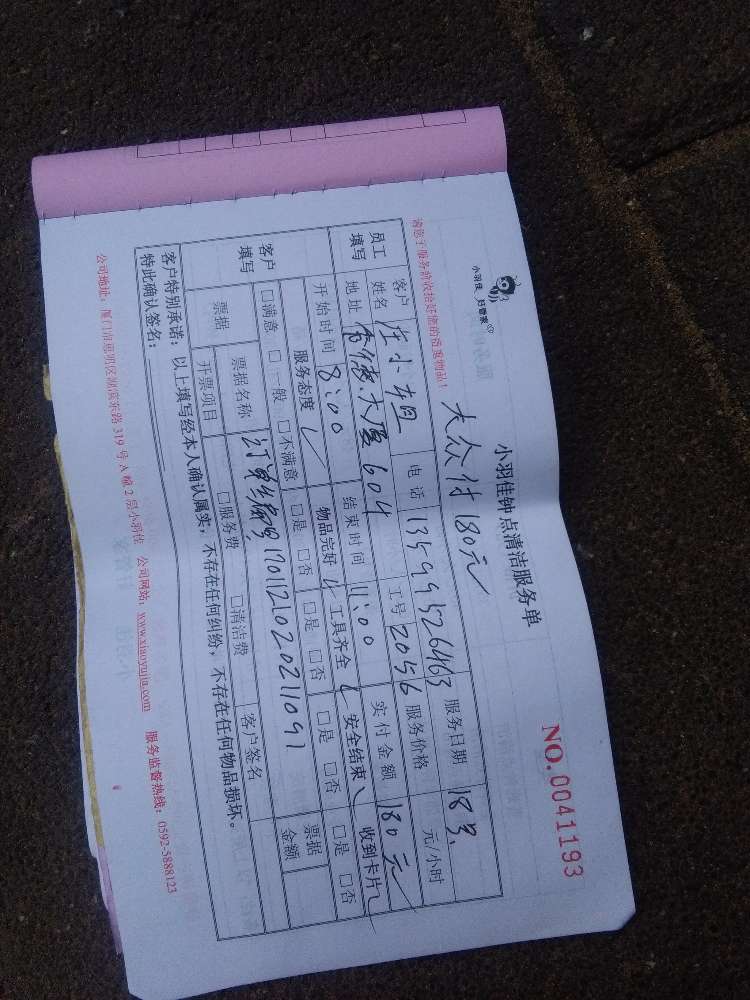 小羽佳 好管家
小羽佳钟点清洁服务单
NO.0041193
请您于服务前收拾好您的贵重物品！
大众付180元
员工填写
客户姓名 庄小姐 电话 13599526463 服务日期 18号
地址 大厦604 工号 2056 服务价格 元/小时
开始时间 8:00 结束时间 11:00 实付金额 180元
客户填写
服务态度 物品完好 工具齐全 安全结束 收到卡片
□满意 □一般 □不满意 □是 □否 □是 □否 □是 □否 □是 □否
票据 票据名称 订单编号1701121020211091 票据金额
开票项目 □服务费 □清洁费 客户签名
客户特别承诺：以上填写经本人确认属实，不存在任何纠纷，不存在任何物品损坏。
特此确认签名：
公司地址：厦门市思明区湖滨东路319号A幢2层小羽佳 公司网站：www.xiaoyujia.com 服务监督热线：0592-5888123